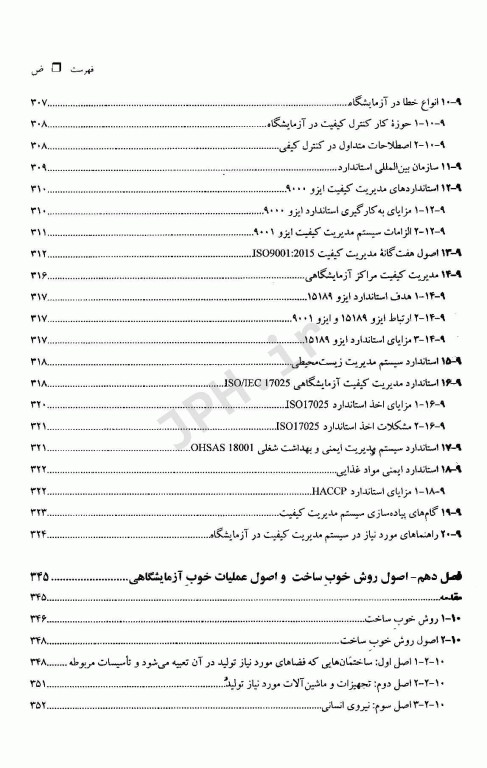 فهرست ❒ ض
۹-۱۰ انواع خطا در آزمایشگاه ............ ۳۰۷
۹-۱۰-۱ حوزهٔ کار کنترل کیفیت در آزمایشگاه ............ ۳۰۸
۹-۱۰-۲ اصطلاحات متداول در کنترل کیفی ............ ۳۰۸
۹-۱۱ سازمان بین‌المللی استاندارد ............ ۳۰۹
۹-۱۲ استانداردهای مدیریت کیفیت ایزو ۹۰۰۰ ............ ۳۱۰
۹-۱۲-۱ مزایای به‌کارگیری استاندارد ایزو ۹۰۰۰ ............ ۳۱۰
۹-۱۲-۲ الزامات سیستم مدیریت کیفیت ایزو ۹۰۰۱ ............ ۳۱۱
۹-۱۳ اصول هفت‌گانهٔ مدیریت کیفیت ISO9001:2015 ............ ۳۱۲
۹-۱۴ مدیریت کیفیت مراکز آزمایشگاهی ............ ۳۱۶
۹-۱۴-۱ هدف استاندارد ایزو ۱۵۱۸۹ ............ ۳۱۷
۹-۱۴-۲ ارتباط ایزو ۱۵۱۸۹ و ایزو ۹۰۰۱ ............ ۳۱۷
۹-۱۴-۳ مزایای استاندارد ایزو ۱۵۱۸۹ ............ ۳۱۷
۹-۱۵ استاندارد سیستم مدیریت زیست‌محیطی ............ ۳۱۸
۹-۱۶ استاندارد مدیریت کیفیت آزمایشگاهی ISO/IEC 17025 ............ ۳۱۸
۹-۱۶-۱ مزایای اخذ استاندارد ISO17025 ............ ۳۲۰
۹-۱۶-۲ مشکلات اخذ استاندارد ISO17025 ............ ۳۲۱
۹-۱۷ استاندارد سیستم مدیریت ایمنی و بهداشت شغلی OHSAS 18001 ............ ۳۲۱
۹-۱۸ استاندارد ایمنی مواد غذایی ............ ۳۲۲
۹-۱۸-۱ مزایای استاندارد HACCP ............ ۳۲۲
۹-۱۹ گام‌های پیاده‌سازی سیستم مدیریت کیفیت ............ ۳۲۳
۹-۲۰ راهنماهای مورد نیاز در سیستم مدیریت کیفیت در آزمایشگاه ............ ۳۲۴
فصل دهم- اصول روش خوب ساخت و اصول عملیات خوب آزمایشگاهی ............ ۳۴۵
مقدمه ............ ۳۴۵
۱۰-۱ روش خوب ساخت ............ ۳۴۶
۱۰-۲ اصول روش خوب ساخت ............ ۳۴۸
۱۰-۲-۱ اصل اول: ساختمان‌هایی که فضاهای مورد نیاز تولید در آن تعبیه می‌شود و تأسیسات مربوطه ........ ۳۴۸
۱۰-۲-۲ اصل دوم: تجهیزات و ماشین‌آلات مورد نیاز تولید ............ ۳۵۱
۱۰-۲-۳ اصل سوم: نیروی انسانی ............ ۳۵۲
JPH.ir